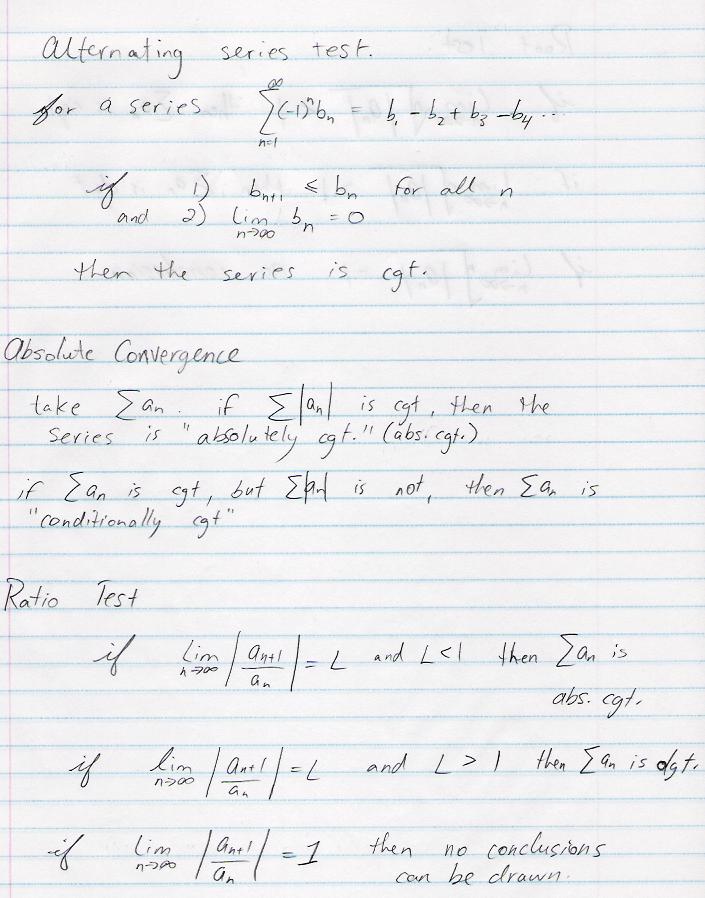 Alternating series test.
for a series ∑_{n=1}^{∞} (-1)^n b_n = b_1 - b_2 + b_3 - b_4 ...
if 1) b_{n+1} ≤ b_n for all n
and 2) lim_{n→∞} b_n = 0
then the series is cgt.
Absolute Convergence
take ∑ a_n. if ∑ |a_n| is cgt, then the
series is "absolutely cgt." (abs. cgt.)
if ∑ a_n is cgt, but ∑ |a_n| is not, then ∑ a_n is
"conditionally cgt"
Ratio Test
if lim_{n→∞} |a_{n+1}/a_n| = L and L < 1 then ∑ a_n is
abs. cgt.
if lim_{n→∞} |a_{n+1}/a_n| = L and L > 1 then ∑ a_n is dgt.
if lim_{n→∞} |a_{n+1}/a_n| = 1 then no conclusions
can be drawn.